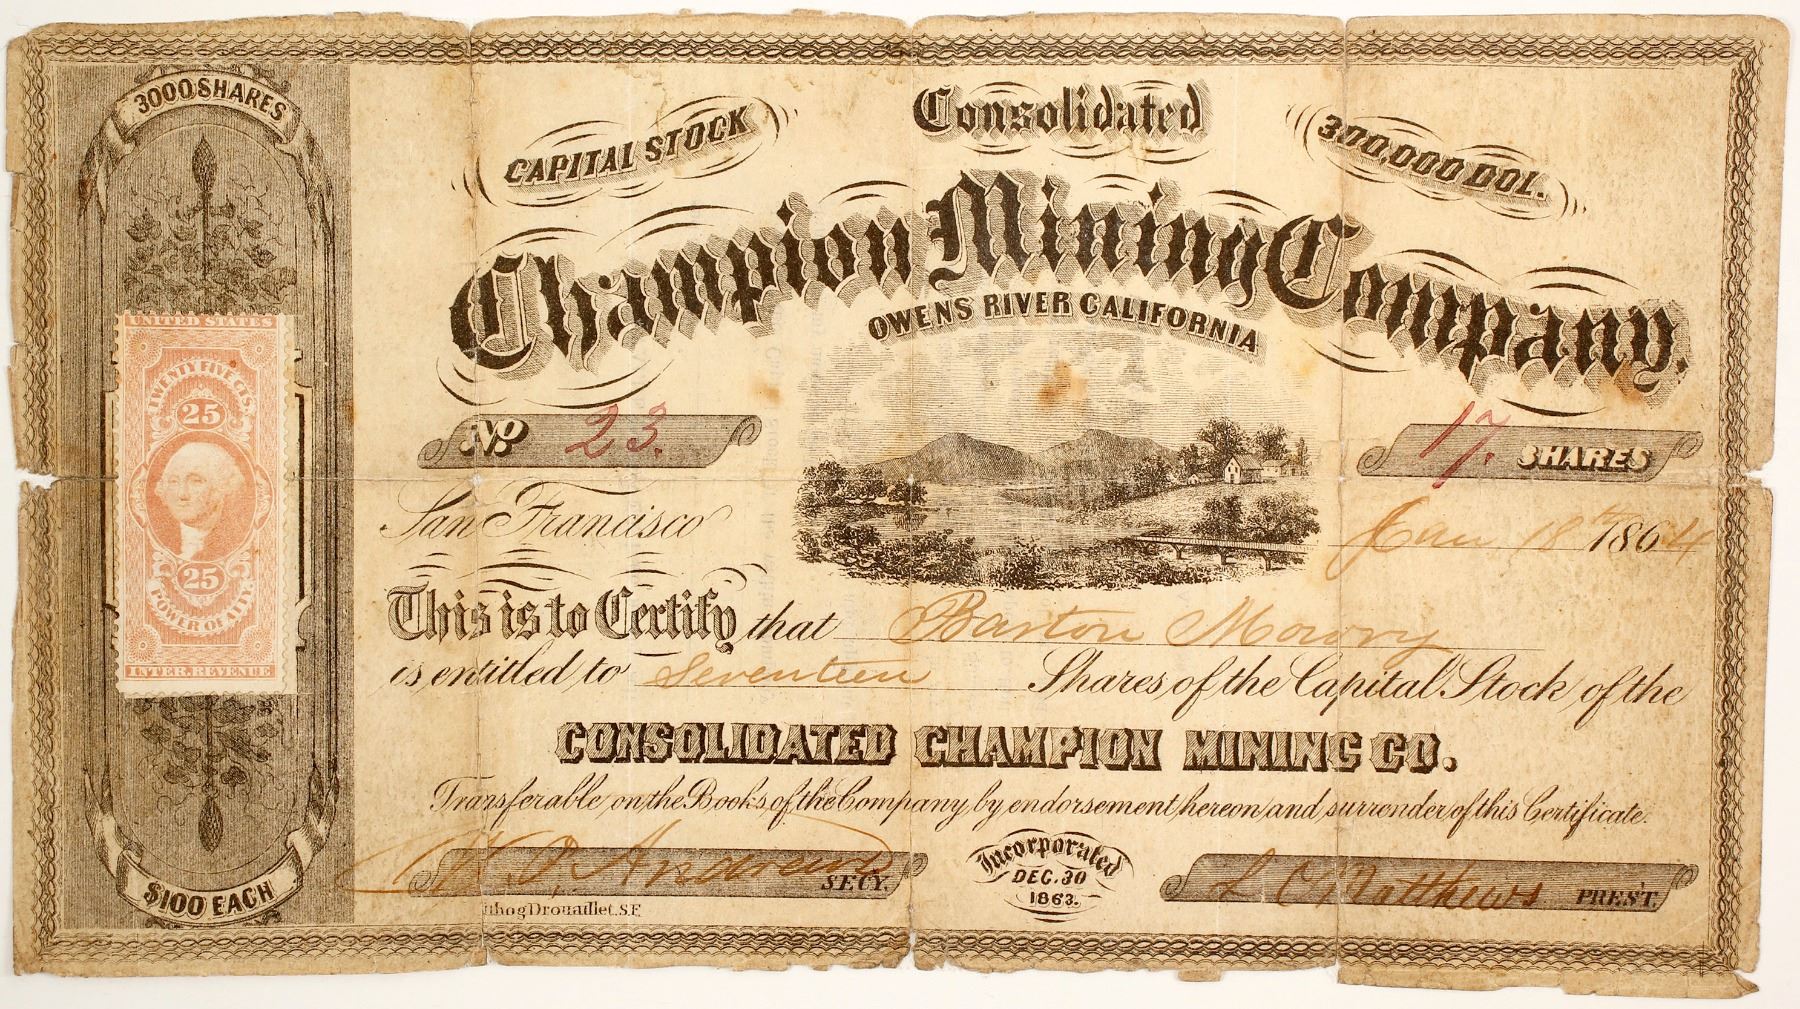 3000 SHARES
CAPITAL STOCK
Consolidated
300,000 DOL.
Champion Mining Company.
OWENS RIVER CALIFORNIA
UNITED STATES
TWENTY FIVE CTS.
25
25
POWER OF ATTY.
INTER. REVENUE
No 23.
17. SHARES
San Francisco Jan 18th 1864
This is to Certify that Barton Mowry
is entitled to Seventeen Shares of the Capital Stock of the
CONSOLIDATED CHAMPION MINING CO.
Transferable on the Books of the Company, by endorsement hereon and surrender of this Certificate.
Andrews SECY.
Incorporated
DEC. 30
1863.
L C Matthews PREST.
$100 EACH
Lithog Drouaillet. S.F.